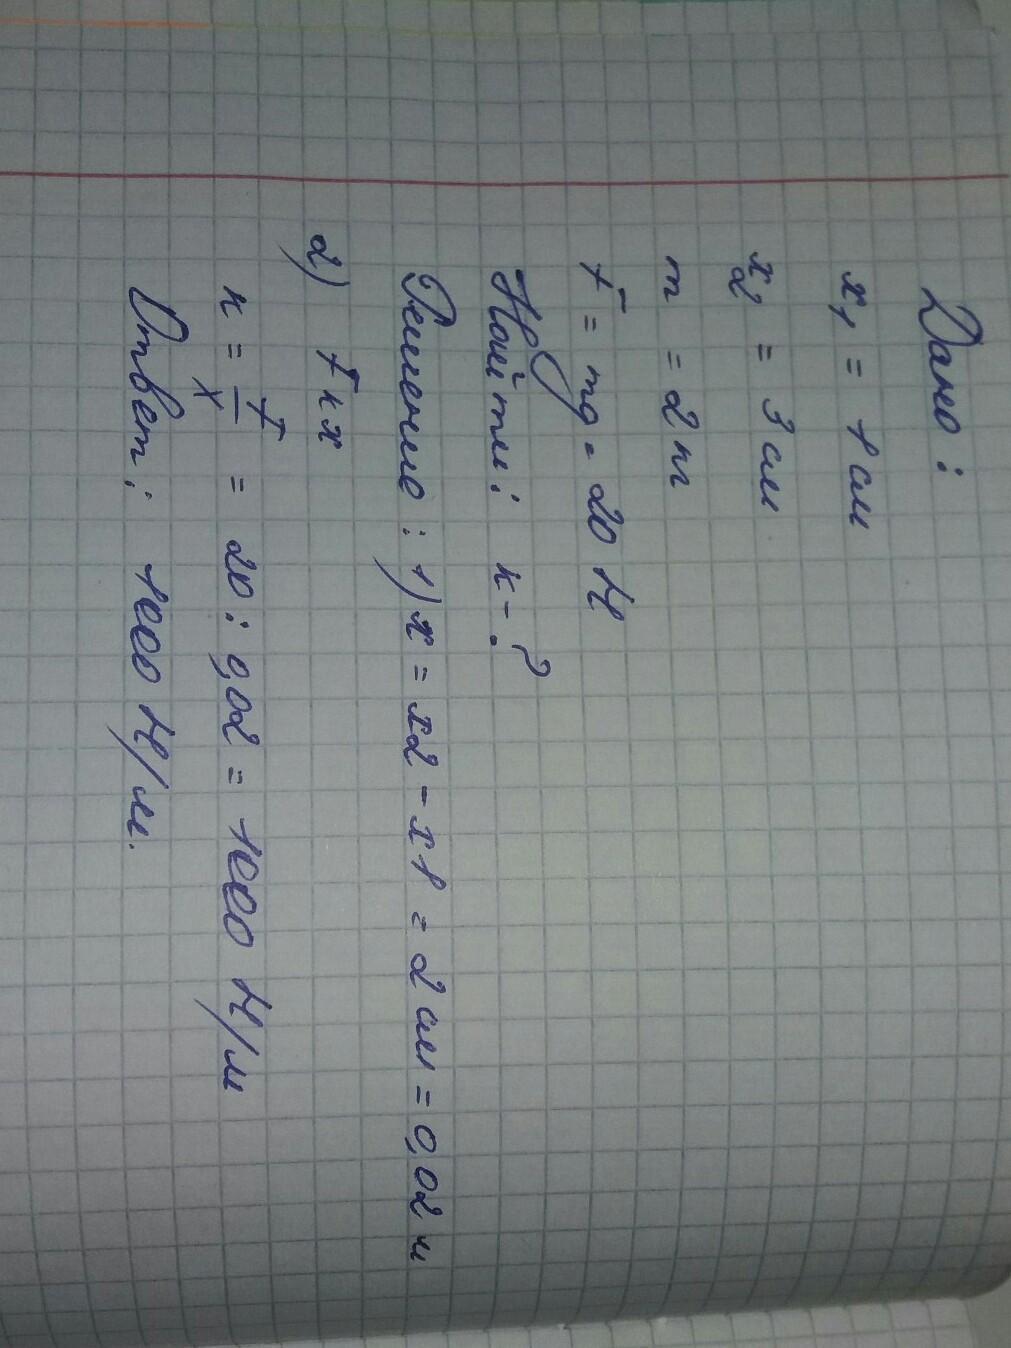 Дано:
x₁ = 1 см
x₂ = 3 см
m = 2 кг
F = mg = 20 Н
Найти: k - ?
Решение: 1) x = x2 - x1 = 2 см = 0,02 м
2) F k x
k = F/x = 20 : 0,02 = 1000 Н/м
Ответ: 1000 Н/м.